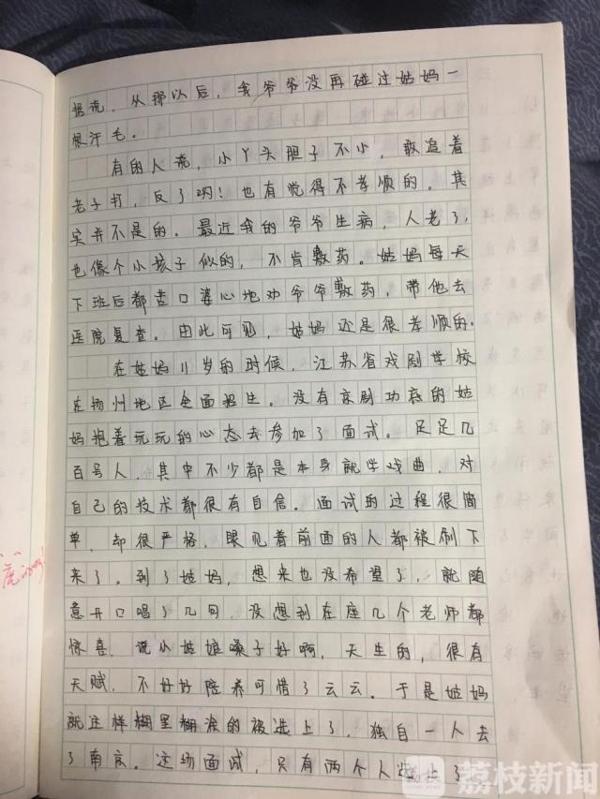 提流，从那以后，我爷爷没再碰过姑妈一
根汗毛。
有的人说，小丫头胆子不小，敢追着
老子打，反了哟！也有觉得不孝顺的。其
实并不是的。最近我的爷爷生病，人老了，
也像个小孩子似的，不肯敷药。姑妈每天
下班后都苦口婆心地劝爷爷敷药，带他去
医院复查。由此可见，姑妈还是很孝顺的。
在姑妈11岁的时候，江苏省戏剧学校
在扬州地区全面招生。没有京剧功底的姑
妈抱着玩玩的心态去参加了面试。足足几
百号人，其中不少都是本身就学戏曲，对
自己的技术都很有自信。面试的过程很简
单，却很严格，眼见着前面的人都被刷下
来了。到了姑妈，想来也没希望了，就随
意开口唱了几句，没想到在座几个老师都
惊喜，说小姑娘嗓子好啊，天生的，很有
天赋，不好好陪养可惜了云云。于是姑妈
就这样糊里糊涂的被选上了，独自一人去
了南京。这场面试，只有两个人
荔枝新闻